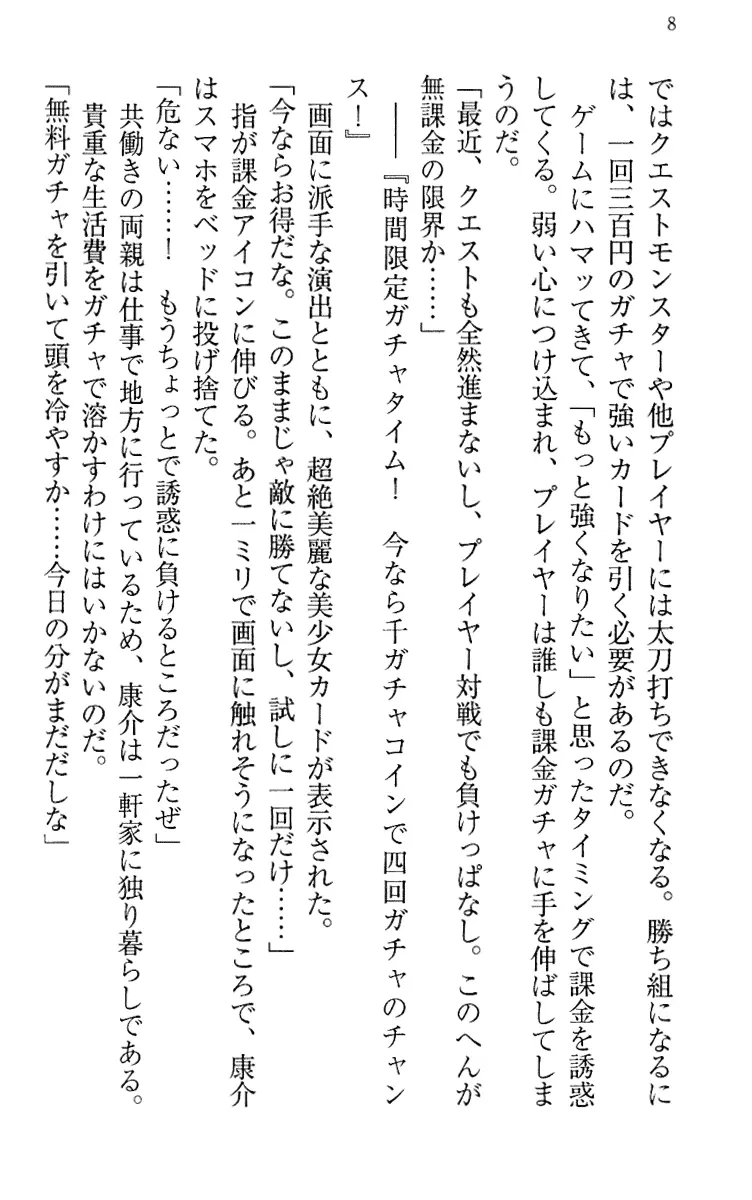 8
ではクエストモンスターや他プレイヤーには太刀打ちできなくなる。勝ち組になるに
は、一回三百円のガチャで強いカードを引く必要があるのだ。
ゲームにハマッてきて、「もっと強くなりたい」と思ったタイミングで課金を誘惑
してくる。弱い心につけ込まれ、プレイヤーは誰しも課金ガチャに手を伸ばしてしま
うのだ。
「最近、クエストも全然進まないし、プレイヤー対戦でも負けっぱなし。このへんが
無課金の限界か……」
――『時間限定ガチャタイム！　今なら千ガチャコインで四回ガチャのチャン
ス！』
画面に派手な演出とともに、超絶美麗な美少女カードが表示された。
「今ならお得だな。このままじゃ敵に勝てないし、試しに一回だけ……」
指が課金アイコンに伸びる。あと一ミリで画面に触れそうになったところで、康介
はスマホをベッドに投げ捨てた。
「危ない……！　もうちょっとで誘惑に負けるところだったぜ」
共働きの両親は仕事で地方に行っているため、康介は一軒家に独り暮らしである。
貴重な生活費をガチャで溶かすわけにはいかないのだ。
「無料ガチャを引いて頭を冷やすか……今日の分がまだだしな」